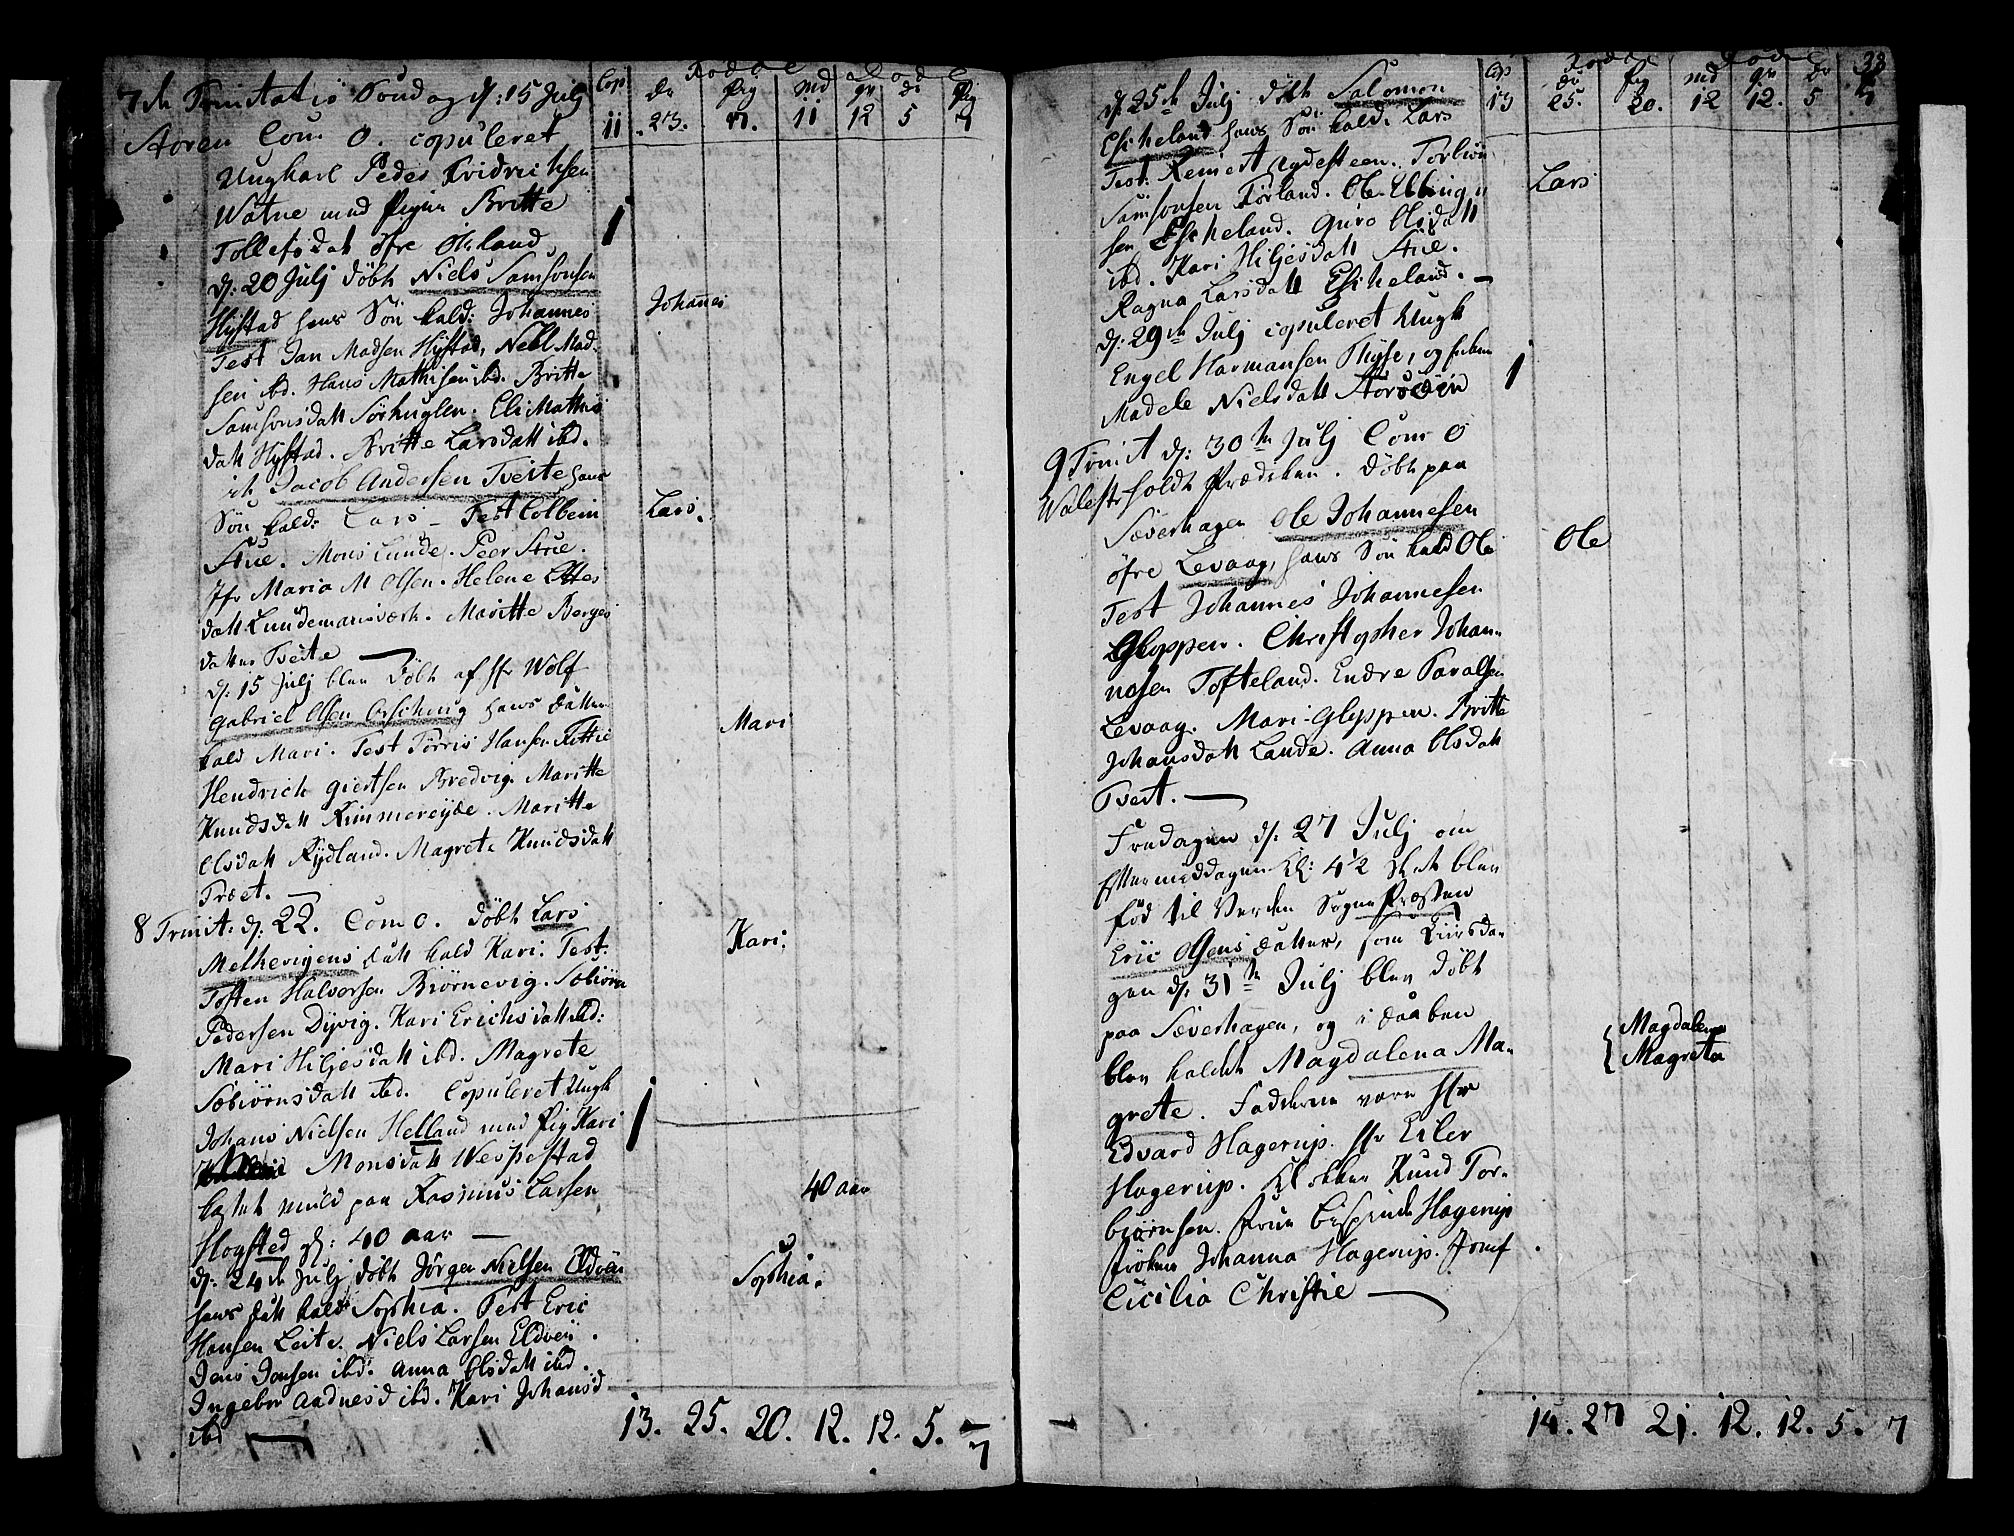 7de Trinitatis Søndag d: 15 Julj
Støren Com 0. copuleret
Ungkarl Peder Fridrichsen
Watne med Pigen Britte
Tollefsdatt öfre Økland
d: 20 Julj döbt Niels Samsonsen
Hystad hans Sön kald: Johannes
Test Jan Madsen Hystad, Nell Mad-
sen ibd. Hans Mathisen ibd. Britte
Samsonsdatt Sörhuglen. Eli Mathis
datt Hystad. Britte Larsdatt ibd.
it. Jacob Andersen Tveite hans
Sön kald: Lars - Test Colbein
Aue. Mons Lunde. Peer Aue.
Jfr Maria M Olsen. Helene
datt Lundemansværk. Maritte Berges
datter Tveite
d: 15 Julj blev Döbt af Hr Wolf
Gabriel Olsen hans datter
kald Mari. Test Törris Hansen
Hendrich Giertsen Bredvig. Maritte
Knudsdatt Kimmereyde. Maritte
Olsdatt Rydland. Magrete Knudsdatt
Træet.
8 Trinit: d: 22. Com 0. döbt Lars
Melkevigens datt kald Kari. Test:
Tosten Halvorsen Biörnevig. Sebiörn
Pedersen Dyvig. Kari Erichsdatt ibd:
Mari Hiljesdatt ibd. Magrete
Sebiörnsdatt ibd. Copuleret Ungk
Johans Nielsen Helland med Pig Kari
Monsdatt Wespestad
kastet muld paa Rasmus Larsen
Hogsted gl: 40 aar
d: 24de Julj döbt Jörgen Nielsen Eldöen
hans datt kald Sophia. Test Eric
Hansen Leite. Niels Larsen Eldöen
Jens Jensen ibd. Anna Olsdatt ibd.
Ingebor Aadnesd ibd. Kari Johansd
ibd
Cop
Födde
Döde
dr
Pig
md
qv
dr
Pig
11
23.
17.
11
12
5
7
1
Johannes
Lars.
Mari
Kari.
1
40 aar
Sophia.
13. 25. 20. 12. 12. 5. 7
d: 25de Julj döbt Salomon
Eskeland hans Sön kald: Lars
Test: Reinert Aydesteen. Torbiörn
Samsonsen Förland. Ole Ellingn
sen Eskeland. Guro Olsdatt
ibd. Kari Hiljesdatt Aue.
Ragna Larsdatt Eskeland.
d: 29de Julj copuleret Ungk
Engel Harmansen Thyse, og
Madele Nielsdatt Storöen
9 Trinit d: 30te Julj Com 0
Walestr holdt Prædiken. Döbt paa
Sæverhagen Ole Johannesen
öfre Levaag, hans Sön kald Ole
Test Johannes Johannesen
Gloppen. Christopher Johan-
nesen Tofteland. Endre Pavalsen
Levaag. Mari Gloppen. Britte
Johansdatt Lande. Anna Olsdatt
Tveit.
Fredagen d: 27 Julj om
Eftermiddagen Kl: 4 1/2 blev
föd til Verden Sogne Præsten
Eric Olsens datter, som Tiirsda-
gen d: 31te Julj blev döbt
paa Sæverhagen, og i daaben
blev kaldet Magdalena Ma-
grete. Fadderne vare Hr
Edvard Hagerup. Hr Eiler
Hagerup. Klokker Knud Tor-
biörnsen. Frue Bispinde Hagerup
Fröken Johanna Hagerup. Jomf
Cicilia Christie
38
Cop
Födde
Döde
dr
Pig
md
qv
dr
13
25.
20.
12
12.
5
7
Lars
1
Ole
Magdalena
Magreta
14. 27 21. 12. 12. 5. 7